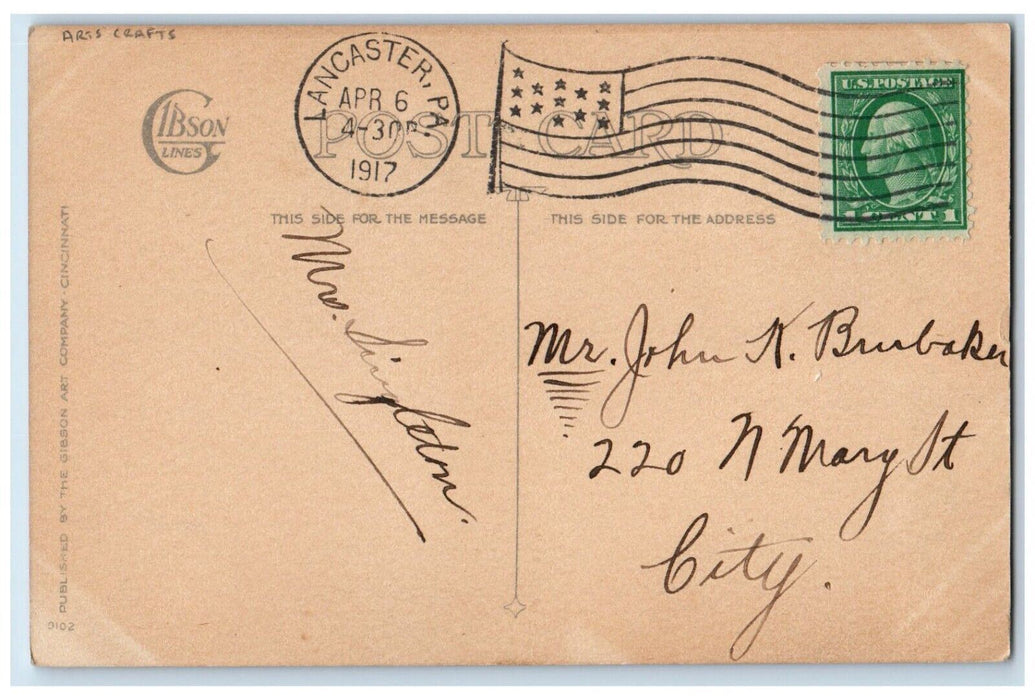 ARTS CRAFTS
GIBSON
LINES
LANCASTER, PA.
APR 6
4-30P
1917
POST CARD
U.S. POSTAGE
1 CENT 1
THIS SIDE FOR THE MESSAGE
THIS SIDE FOR THE ADDRESS
Mrs. Singleton.
Mr. John K. Brubaker
220 N Mary St
City.
PUBLISHED BY THE GIBSON ART COMPANY · CINCINNATI
9102